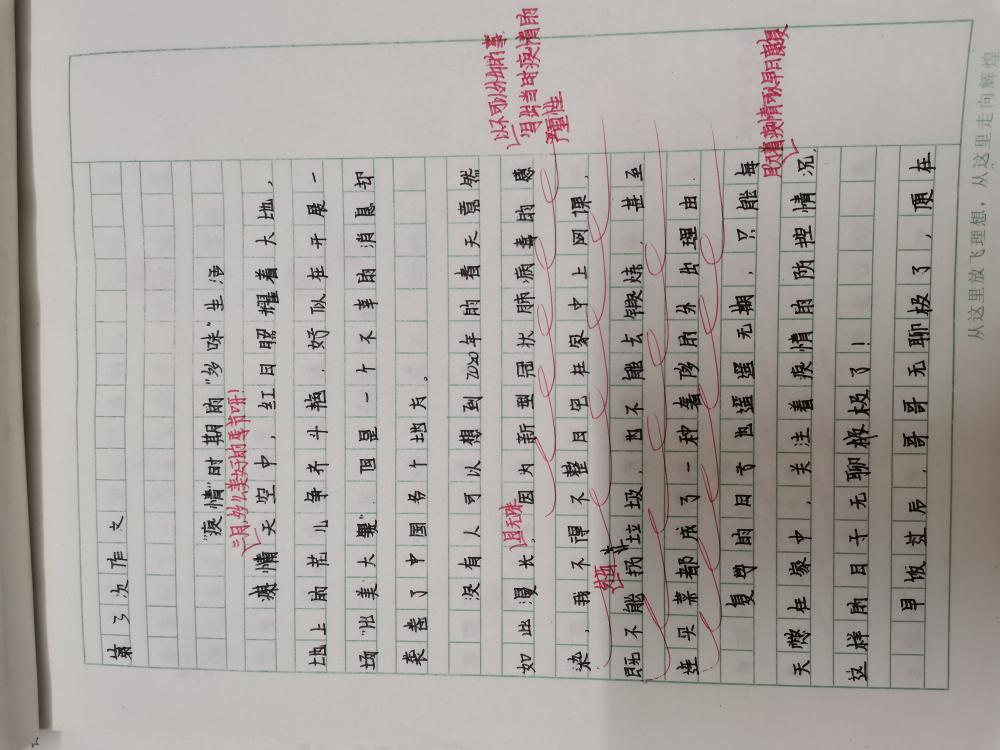 第3次作文
"疫情"时期的"多味"生活
三月,多么美好的季节呀!
天空中,红日照耀着大地,
地上的花儿争齐斗艳,好似在开展一
场"出美大赛",但是一个不幸的消息却
袭卷了中国各个地方。
没有人可以想到2020年的春天竟然
以不可以外出的事
写出当时疫情的
严重性
如此漫长,因为新型冠状肺病毒的感
染,我不得不整日宅在家中上网课,
既不能扔垃圾,也不能去锻炼,甚至
连买菜都成了一种奢侈的外出理由。
复学的日子也遥遥无期,只能每
盼着疫情可以早日康复
天憋在家中,关注着疫情的防控情况,
这样的日子无聊极了!
早饭过后,哥哥无聊极了,便在
从这里放飞理想,从这里走向辉煌